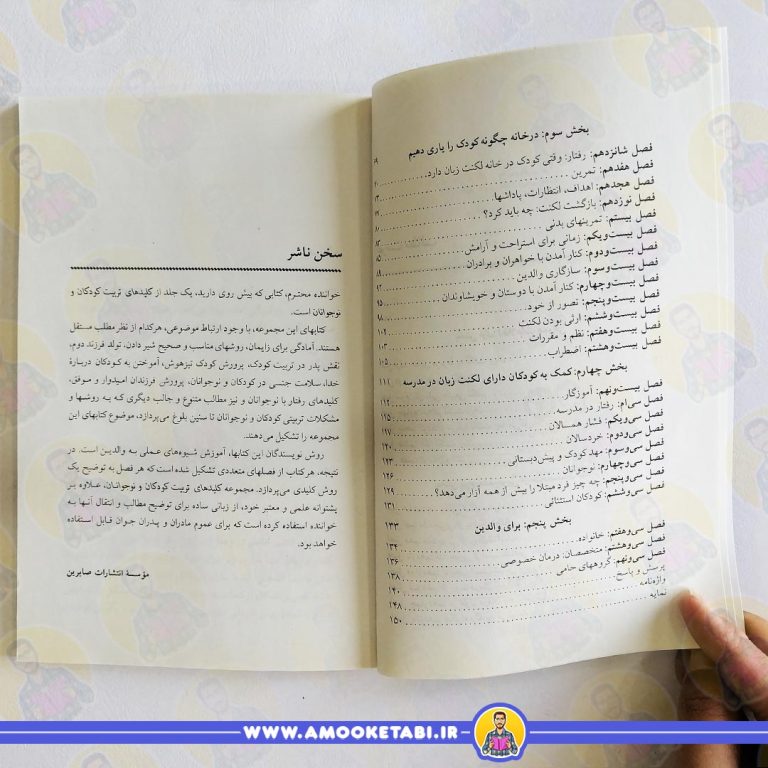 بخش سوم: در خانه چگونه کودک را یاری دهیم
فصل شانزدهم: رفتار: وقتی کودک در خانه لکنت زبان دارد
فصل هفدهم: تمرین
فصل هجدهم: اهداف، انتظارات، پاداشها
فصل نوزدهم: بازگشت لکنت: چه باید کرد؟
فصل بیستم: تمرینهای بدنی
فصل بیست‌ویکم: زمانی برای استراحت و آرامش
فصل بیست‌ودوم: کنار آمدن با خواهران و برادران
فصل بیست‌وسوم: سازگاری والدین
فصل بیست‌وچهارم: کنار آمدن با دوستان و خویشاوندان
فصل بیست‌وپنجم: تصور از خود
فصل بیست‌وششم: ارثی بودن لکنت
فصل بیست‌وهفتم: نظم و مقررات ۱۰۳
فصل بیست‌وهشتم: اضطراب ۱۰۵
بخش چهارم: کمک به کودکان دارای لکنت زبان در مدرسه ۱۱۱
فصل بیست‌ونهم: آموزگار ۱۱۲
فصل سی‌ام: رفتار در مدرسه ۱۱۵
فصل سی‌ویکم: فشار همسالان ۱۱۷
فصل سی‌ودوم: خردسالان ۱۲۰
فصل سی‌وسوم: مهد کودک و پیش‌دبستانی ۱۲۳
فصل سی‌وچهارم: نوجوانان ۱۲۶
فصل سی‌وپنجم: چه چیز فرد مبتلا را بیش از همه آزار می‌دهد؟ ۱۲۹
فصل سی‌وششم: کودکان استثنائی ۱۳۱
بخش پنجم: برای والدین ۱۳۳
فصل سی‌وهفتم: خانواده ۱۳۴
فصل سی‌وهشتم: متخصصان: درمان خصوصی ۱۳۶
فصل سی‌ونهم: گروههای حامی ۱۳۸
پرسش و پاسخ ۱۴۰
واژه‌نامه ۱۴۸
نمایه ۱۵۰
سخن ناشر
خواننده محترم، کتابی که پیش روی دارید، یک جلد از کلیدهای تربیت کودکان و
نوجوانان است.
کتابهای این مجموعه، با وجود ارتباط موضوعی، هرکدام از نظر مطلب مستقل
هستند. آمادگی برای زایمان، روشهای مناسب و صحیح شیر دادن، تولد فرزند دوم،
نقش پدر در تربیت کودک، پرورش کودک تیزهوش، آموختن به کودکان دربارهٔ
خدا، سلامت جنسی در کودکان و نوجوانان، پرورش فرزندان امیدوار و موفق،
کلیدهای رفتار با نوجوانان و نیز مطالب متنوع و جالب دیگری که به روشها و
مشکلات تربیتی کودکان و نوجوانان تا سنین بلوغ می‌پردازد، موضوع کتابهای این
مجموعه را تشکیل می‌دهند.
روش نویسندگان این کتابها، آموزش شیوه‌های عملی به والدین است. در
نتیجه، هر کتاب از فصلهای متعددی تشکیل شده است که هر فصل به توضیح یک
روش کلیدی می‌پردازد. مجموعه کلیدهای تربیت کودکان و نوجوانان، علاوه بر
پشتوانه علمی و معتبر خود، از زبانی ساده برای توضیح مطالب و انتقال آنها به
خواننده استفاده کرده است که برای عموم مادران و پدران جوان قابل استفاده
خواهد بود.
مؤسسهٔ انتشارات صابرین
WWW.AMOOKETABI.IR